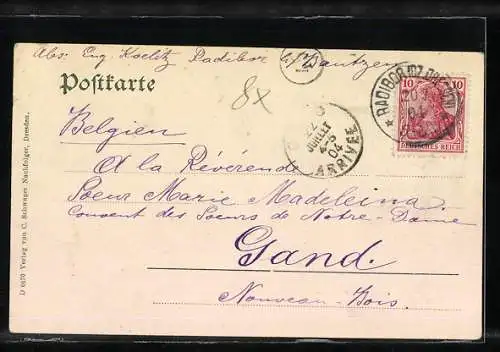 Abs: Eug. Koelitz Radibor Bautzen
Postkarte
8x
RADIBOR (BZ. DRESDEN)
10 10
DEUTSCHES REICH
22
JUILLET
4-5
04
ARRIVÉE
Belgien
A la Révérende
Soeur Marie Madeleina
Convent des Soeurs de Notre-Dame
Gand.
Nouveau-Bois.
D 6670 Verlag von C. Schwager Nachfolger, Dresden.